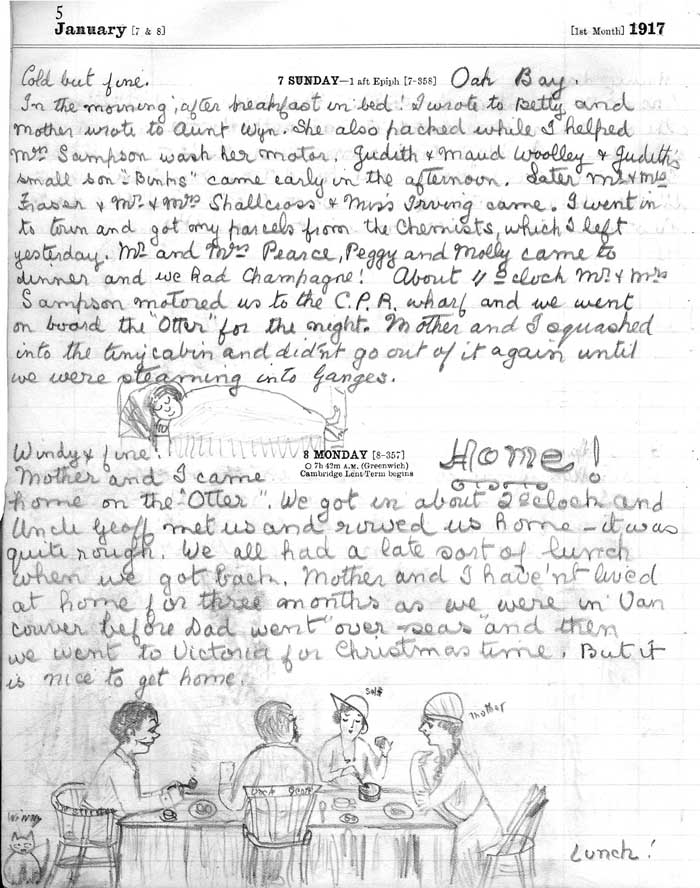 5
January [7 & 8] [1st Month] 1917
Cold but fine. 7 SUNDAY—1 aft Epiph [7-358] Oak Bay.
In the morning, after breakfast in bed! I wrote to Betty and
Mother wrote to Aunt Wyn. She also packed while I helped
Mrs Sampson wash her motor. Judith & Maud Woolley & Judith's
small son "Binks" came early in the afternoon. Later Mr & Mrs
Fraser & Mr & Mrs Shallcross & Miss Irving came. I went in
to town and got my parcels from the Chemists, which I left
yesterday. Mr and Mrs Pearce, Peggy and Molly came to
dinner and we had Champagne! About 11 o'clock Mr & Mrs
Sampson motored us to the C.P.R. wharf and we went
on board the "Otter" for the night. Mother and I squashed
into the tiny cabin and did'nt go out of it again until
we were steaming into Ganges.
Windy & fine. 8 MONDAY [8-357] Home!
○ 7h 42m A.M. (Greenwich)
Cambridge Lent Term begins
Mother and I came
home on the "Otter". We got in about 2 o'clock and
Uncle Geoff met us and rowed us home – it was
quite rough. We all had a late sort of lunch
when we got back. Mother and I have'nt lived
at home for three months as we were in Van
couver before Dad went "over-seas" and then
we went to Victoria for Christmas time. But it
is nice to get home.
self
mother
Uncle Geoff
Lunch!